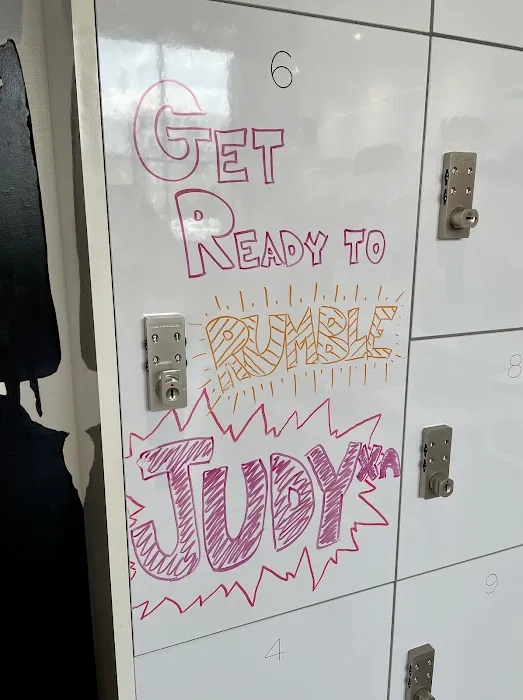 6
GET
READY TO
RUMBLE
JUDYXA
8
9
4